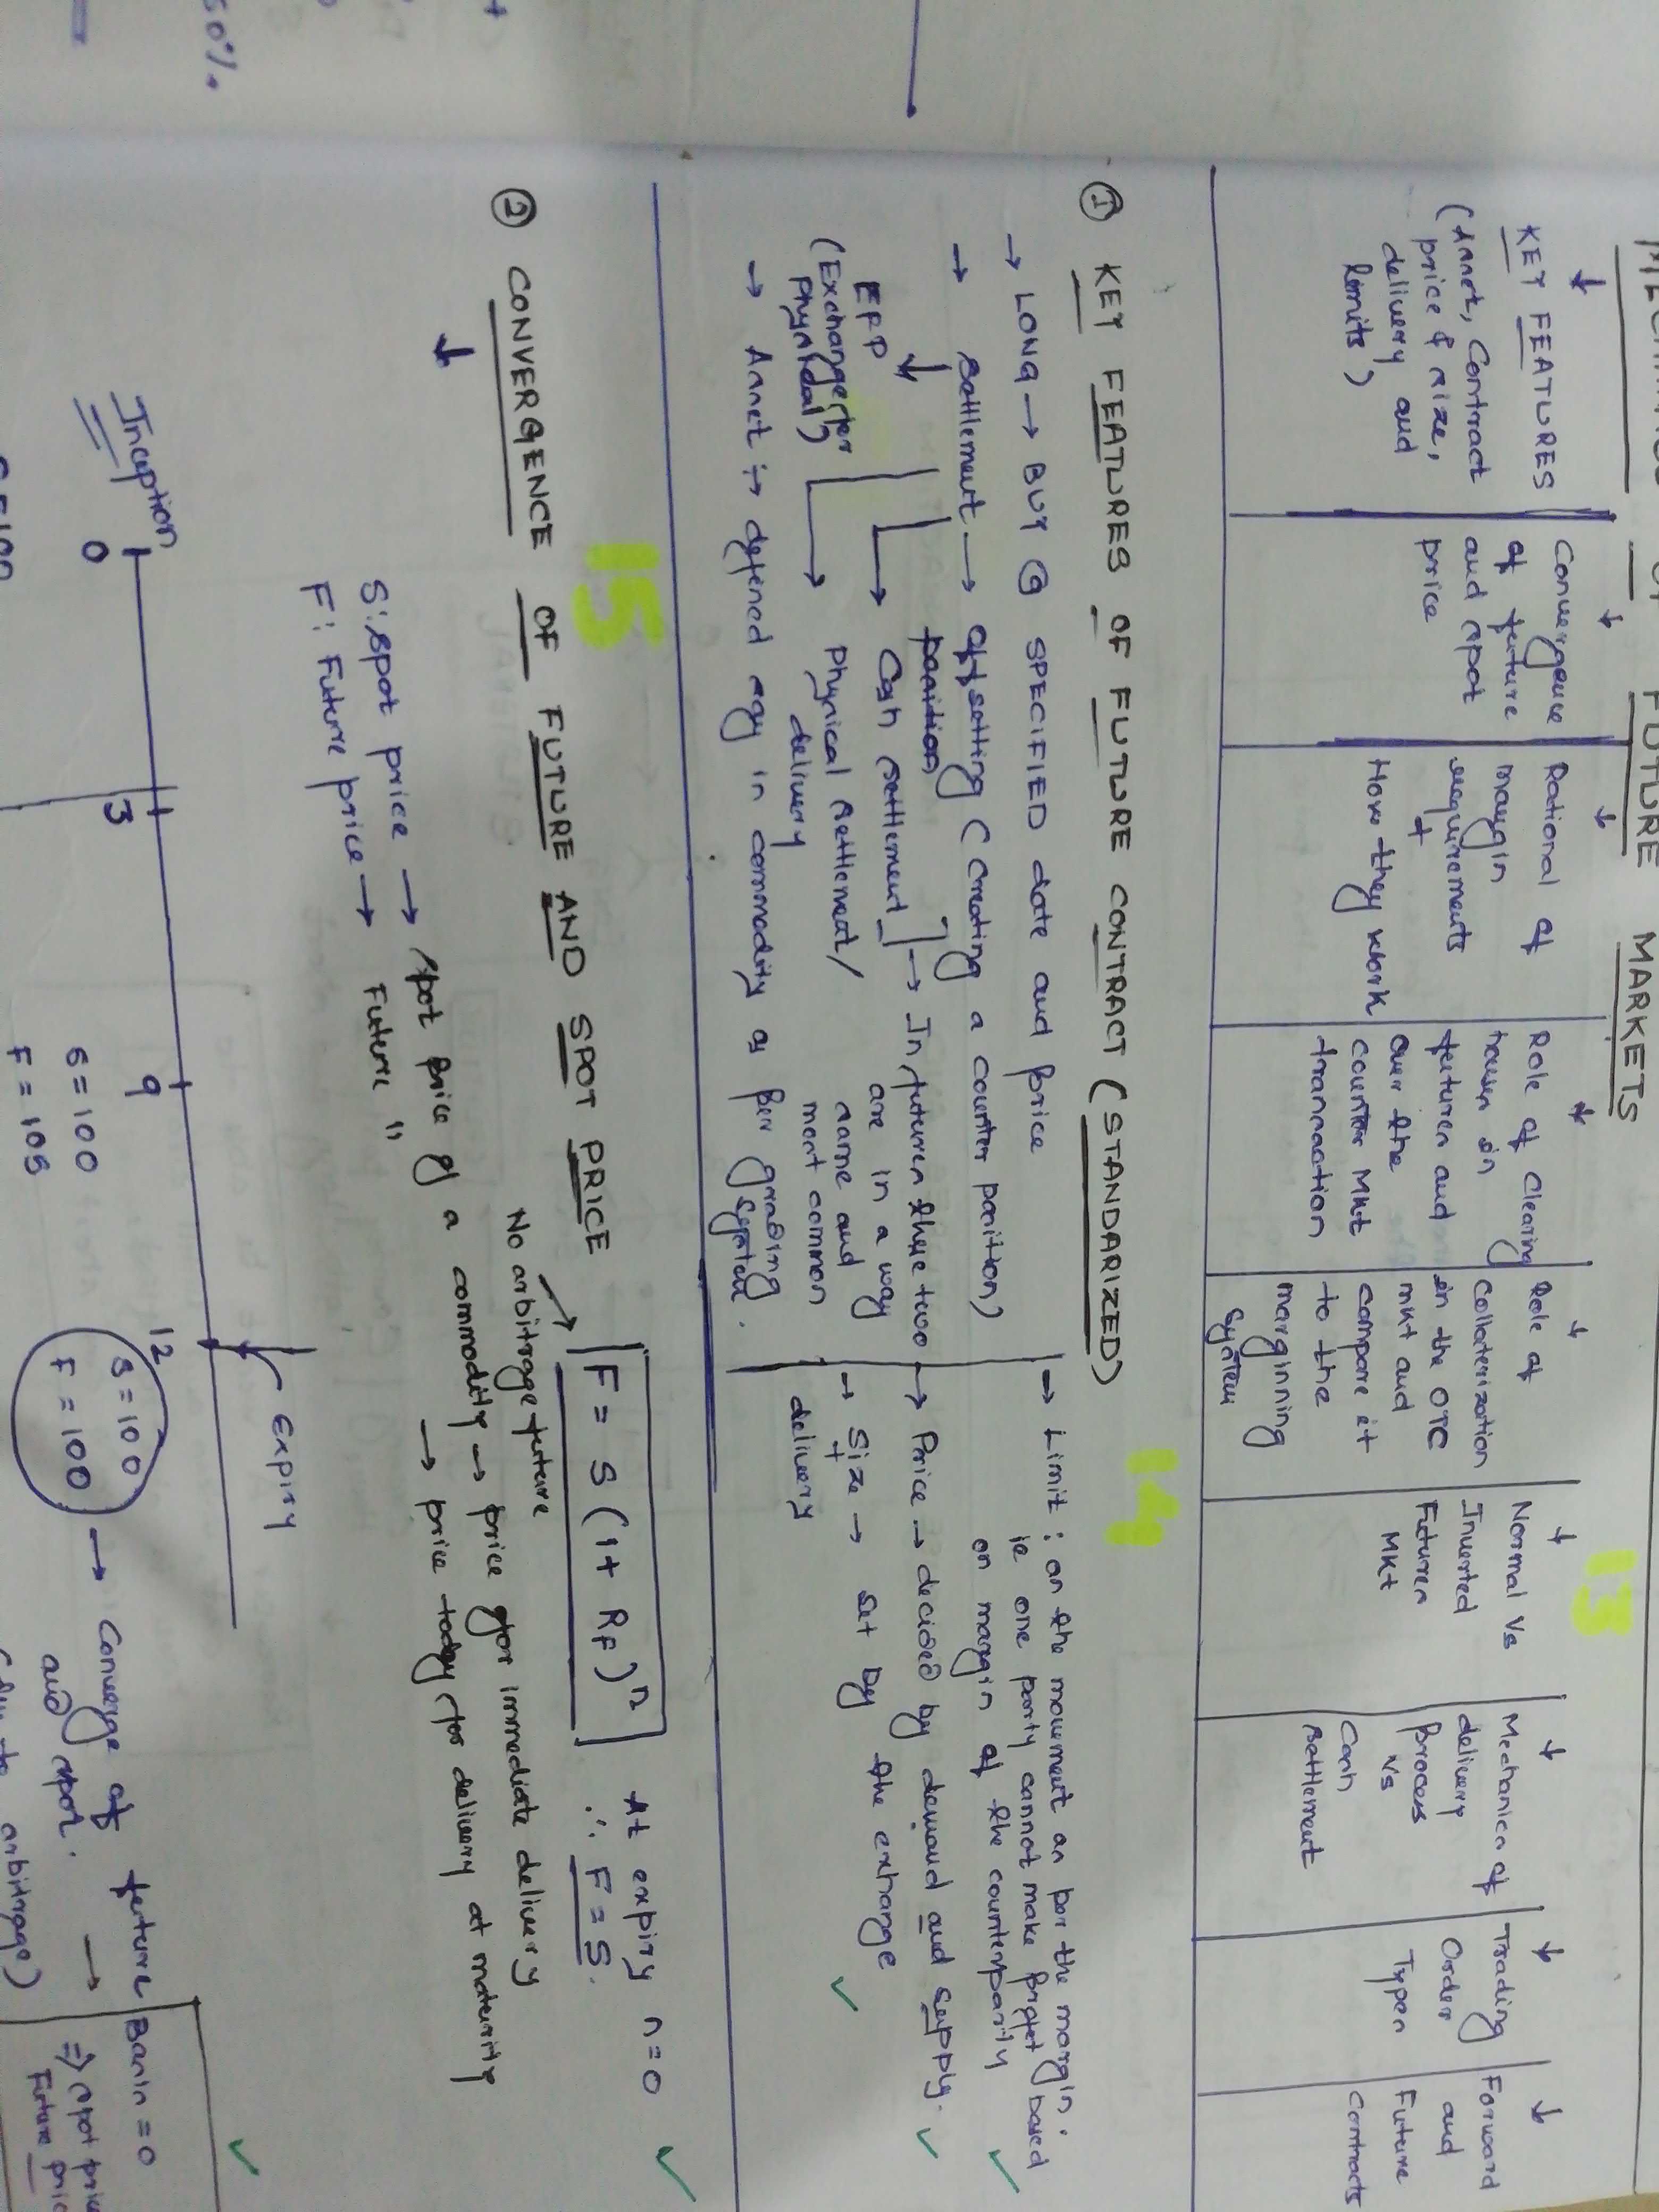 FUTURE MARKETS
13
KEY FEATURES
(Asset, Contract
price & size,
delivery and
limits)
Convergence
of future
and spot
price
Rational of
margin
requirements
+
How they work
Role of Clearing
houses in
futures and
over the
counter Mkt
transaction
Role of
Collaterization
in the OTC
mkt and
compare it
to the
marginning
system
Normal Vs
Inverted
Futures
Mkt
Mechanics of
delivery
Process
Vs
Cash
settlement
Trading
Order
Types
Forward
and
Future
Contracts
14
① KEY FEATURES OF FUTURE CONTRACT (STANDARIZED)
→ LONG → BUY @ SPECIFIED date and price
→ settlement → offsetting (Creating a counter position)
position
EFP
(Exchange for
Physical)
Cash settlement
Physical settlement/
delivery
→ In futures these two
are in a way
same and
most common
→ Asset :→ defined egg in commodity as per grading
system.
→ Limit : on the movement as per the margin.
ie one party cannot make profit based
on margin of the counterparty
→ Price → decided by demand and supply.
→ Size → set by the exchange
+
delivery
15
② CONVERGENCE OF FUTURE AND SPOT PRICE
F = S (1 + RF)^n
At expiry n=0
∴ F = S.
No arbitrage future
S: spot price → spot price of a commodity → price for immediate delivery
F: Future price → Future " → price today for delivery at maturity
Expiry
Inception
0
3
9
12
S = 100
F = 105
S = 100
F = 100
→ Converge of future
and spot.
arbitrage)
→ Basis = 0
⇒ spot
Future
50%.